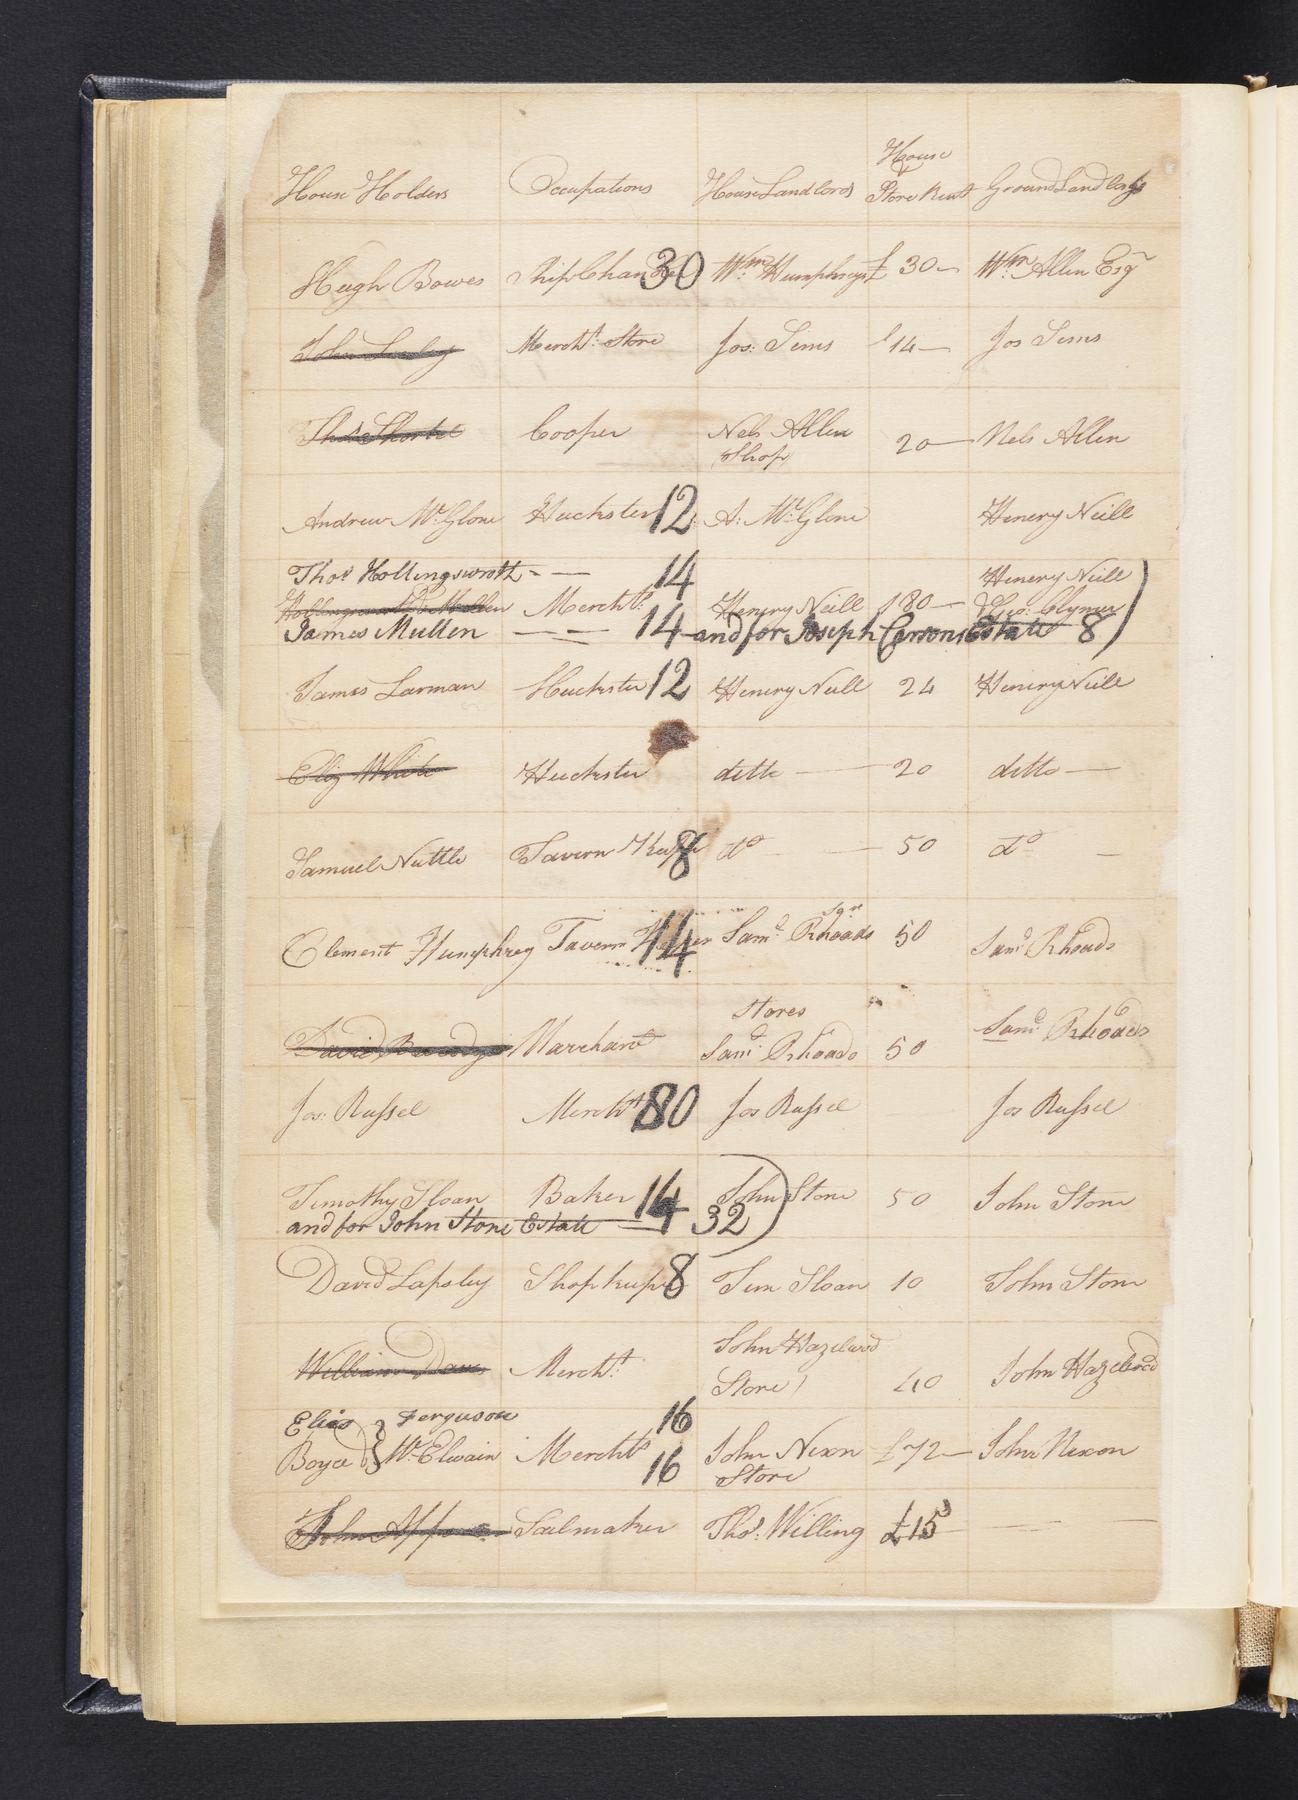 House Holders Occupations House Landlords House & Store Rent Ground Landlords
Hugh Bowes Ship Chan 30 Wm. Humphreys £ 30 — Wm Allen Esqr
John Lesley Mercht: Store Jos: Sims £14 — Jos Sims
Thos Cooper Nels Allen 20 — Nels Allen
Shop
Andrew Mc.Glone Huckster 12 A: Mc.Glone Henery Neill
Thos Hollingsworth - — 14 Henery Neill
Hollingsworth & Mullen Merchts. Henery Neill £80 — Geo: Clymer
James Mullen — — 14 and for Joseph Carsons Estate 8)
James Larman Huckster 12 Henery Neill 24 Henery Neill
Eliz White Huckster ditto — 20 ditto —
Samuel Nuttle Tavern Keeper 8 do — 50 do —
Clement Humphrey Tavern Keeper 14 Saml. Rhoads 50 Saml Rhoads
Stores
David Merchant Saml Rhoads 50 Saml. Rhoads
Jos: Russel Mercht 80 Jos Russel Jos Russel
Timothy Sloan Baker 14 John Stone 50 John Stone
and for John Stone Estate — 32)
David Lapsley Shopkeeper 8 Tim Sloan 10 John Stone
William Davis Mercht: John Hazelwood
Store 40 John Hazelwood
Elias Ferguson 16
Boyce } Mc.Elwain Merchts 16 John Nixn £72 — John Nixon
Store
John Sailmaker Thos: Willing £15 — —